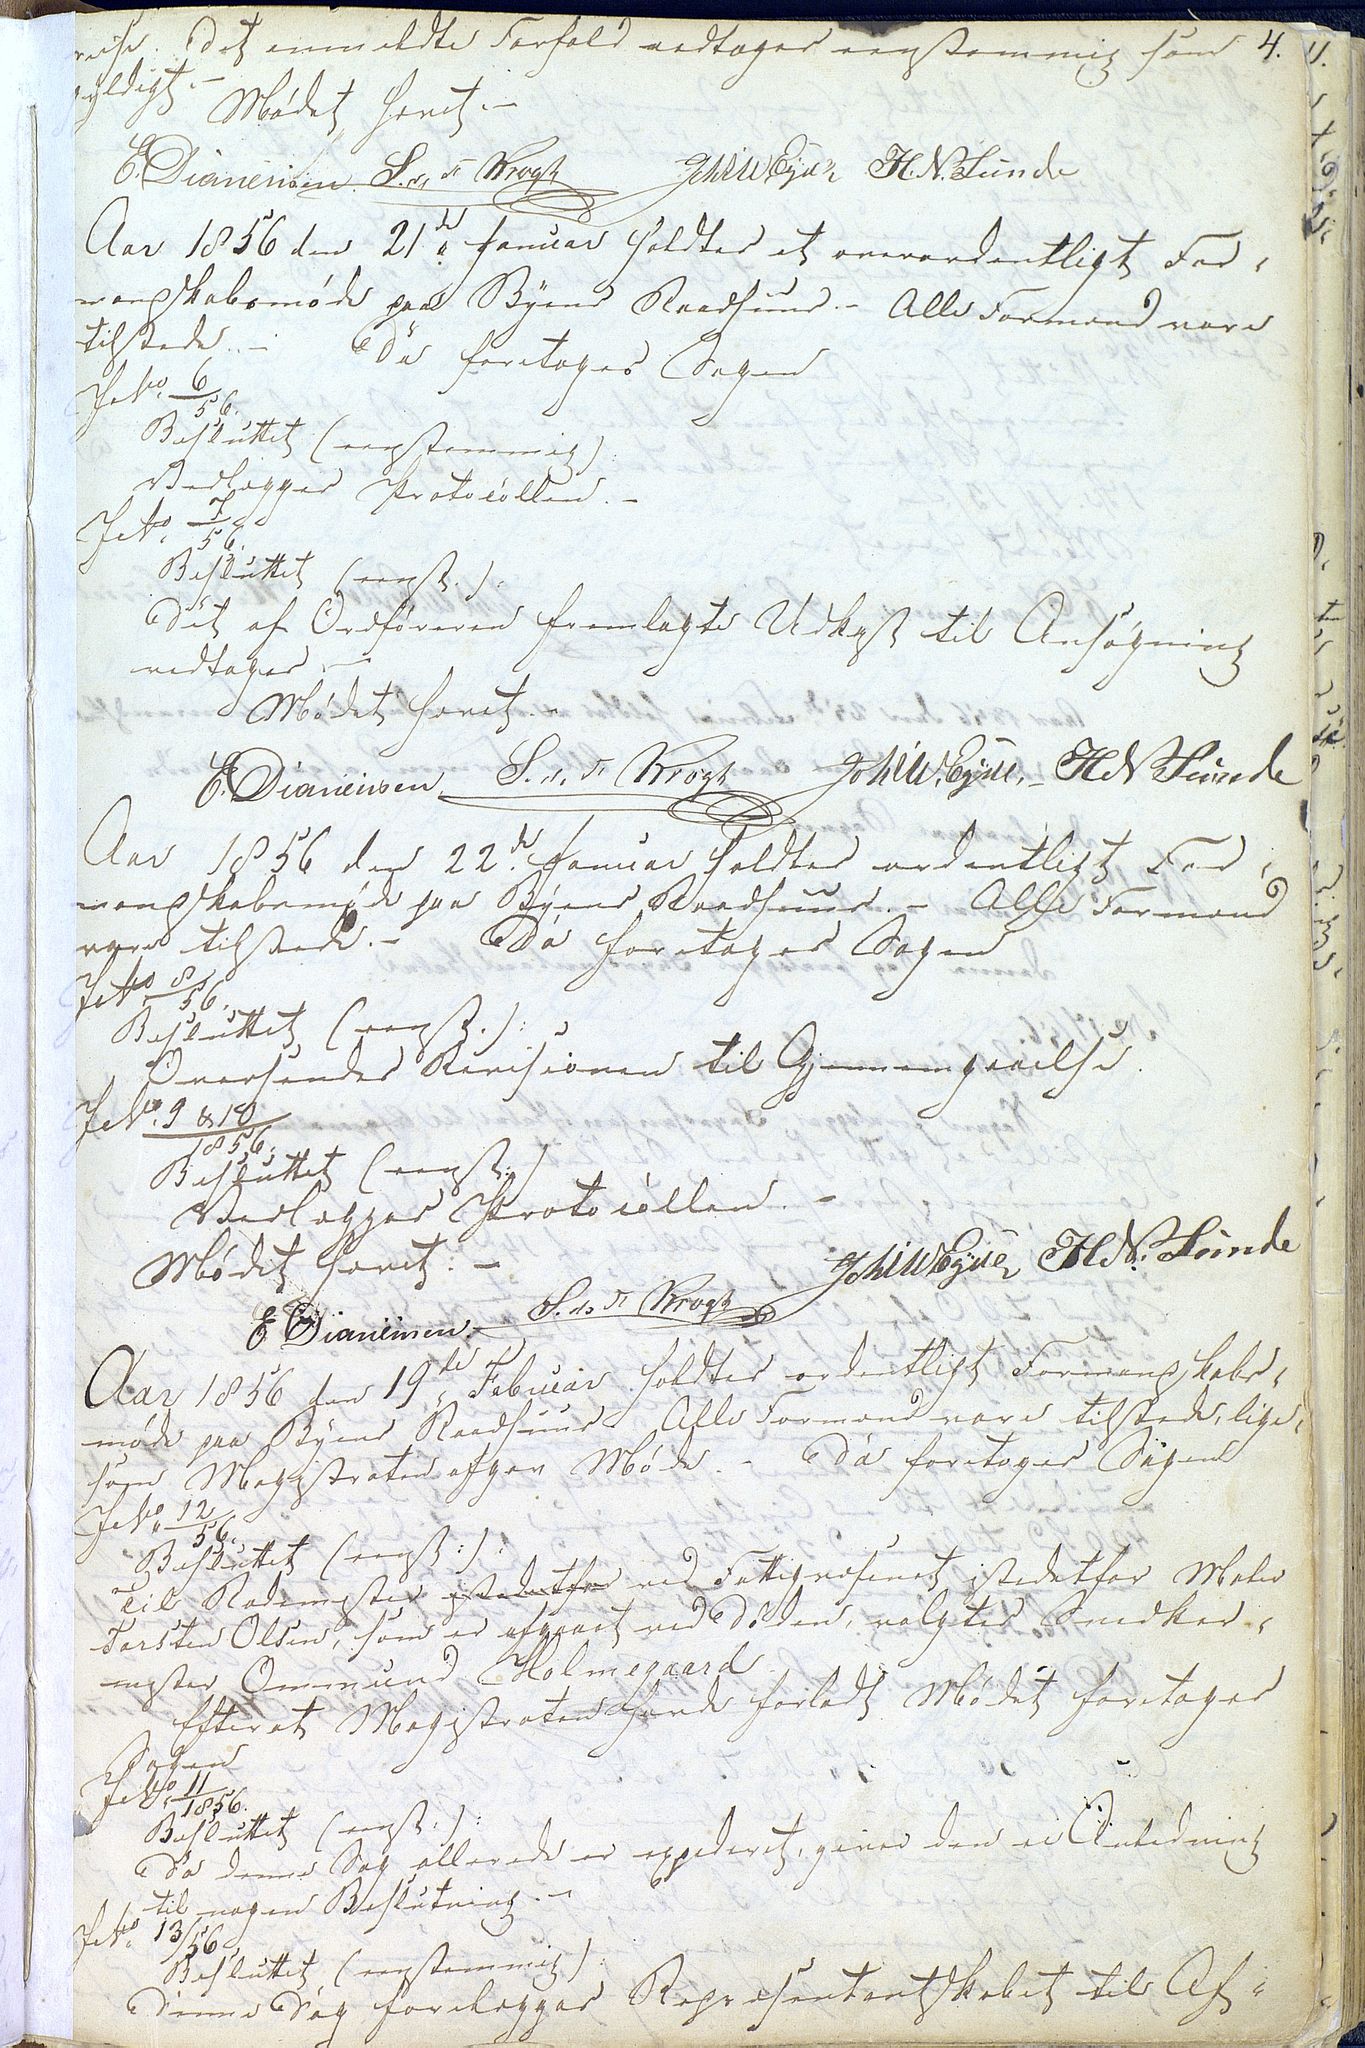 reise. Det anmeldte Forfald vedtages eenstemmig som 4.
gyldigt.-
Mødet hævet.-
E. Dianensen. S. Krogh John W. Eyde H. N. Sunde
Aar 1856 den 21de Januar holdtes et overordentligt For-
mandskabsmøde paa Byens Raadhuus.- Alle Formænd vare
tilstede.- Da foretoges Sagen
J.No. 6/56.
Besluttet (eenstemmig):
Vedlægges Protocollen.-
J.No. 7/56.
Besluttet (eenst.):
Det af Ordføreren fremlagte Udkast til Ansøgning
vedtages.-
Mødet hævet.-
E. Dianensen. S. Krogh John W. Eyde, H. N. Sunde
Aar 1856 den 22de Januar holdtes ordentligt For-
mandskabsmøde paa Byens Raadhuus.- Alle Formænd
vare tilstede.- Da foretoges Sagen
J.No. 8/56.
Besluttet (eenst.):
Oversendes Revisionen til Gjennemgaaelse.
J.No. 9 & 10/1856.
Besluttet (eenst:)
Vedlægges Protocollen.-
Mødet hævet:-
John W. Eyde H. N. Sunde
E Dianensen.- S. Krogh
Aar 1856 den 19de Februar holdtes ordentligt Formandskabs-
møde paa Byens Raadhuus Alle Formænd vare tilstede, lige-
som Magistraten afgav Møde.- Da foretoges Sagen
J.No. 12/56.
Besluttet (eenst:):
Til Rodemester istedetfor ved Fattigvæsenet istedetfor Maler
Torsten Olsen, som er afgaaet ved Døden, valgtes Snedker-
mester Ommund Holmegaard.
Efterat Magistraten havde forladt Mødet foretoges
Sagen
J.No. 11/1856.
Besluttet (eenst.):
Da denne Sag allerede er expederet, giver den ei Anledning
til nogen Beslutning.-
J.No. 13/56
Besluttet (eenstemmig):
Denne Sag forelægges Repræsentantskabet til Af-